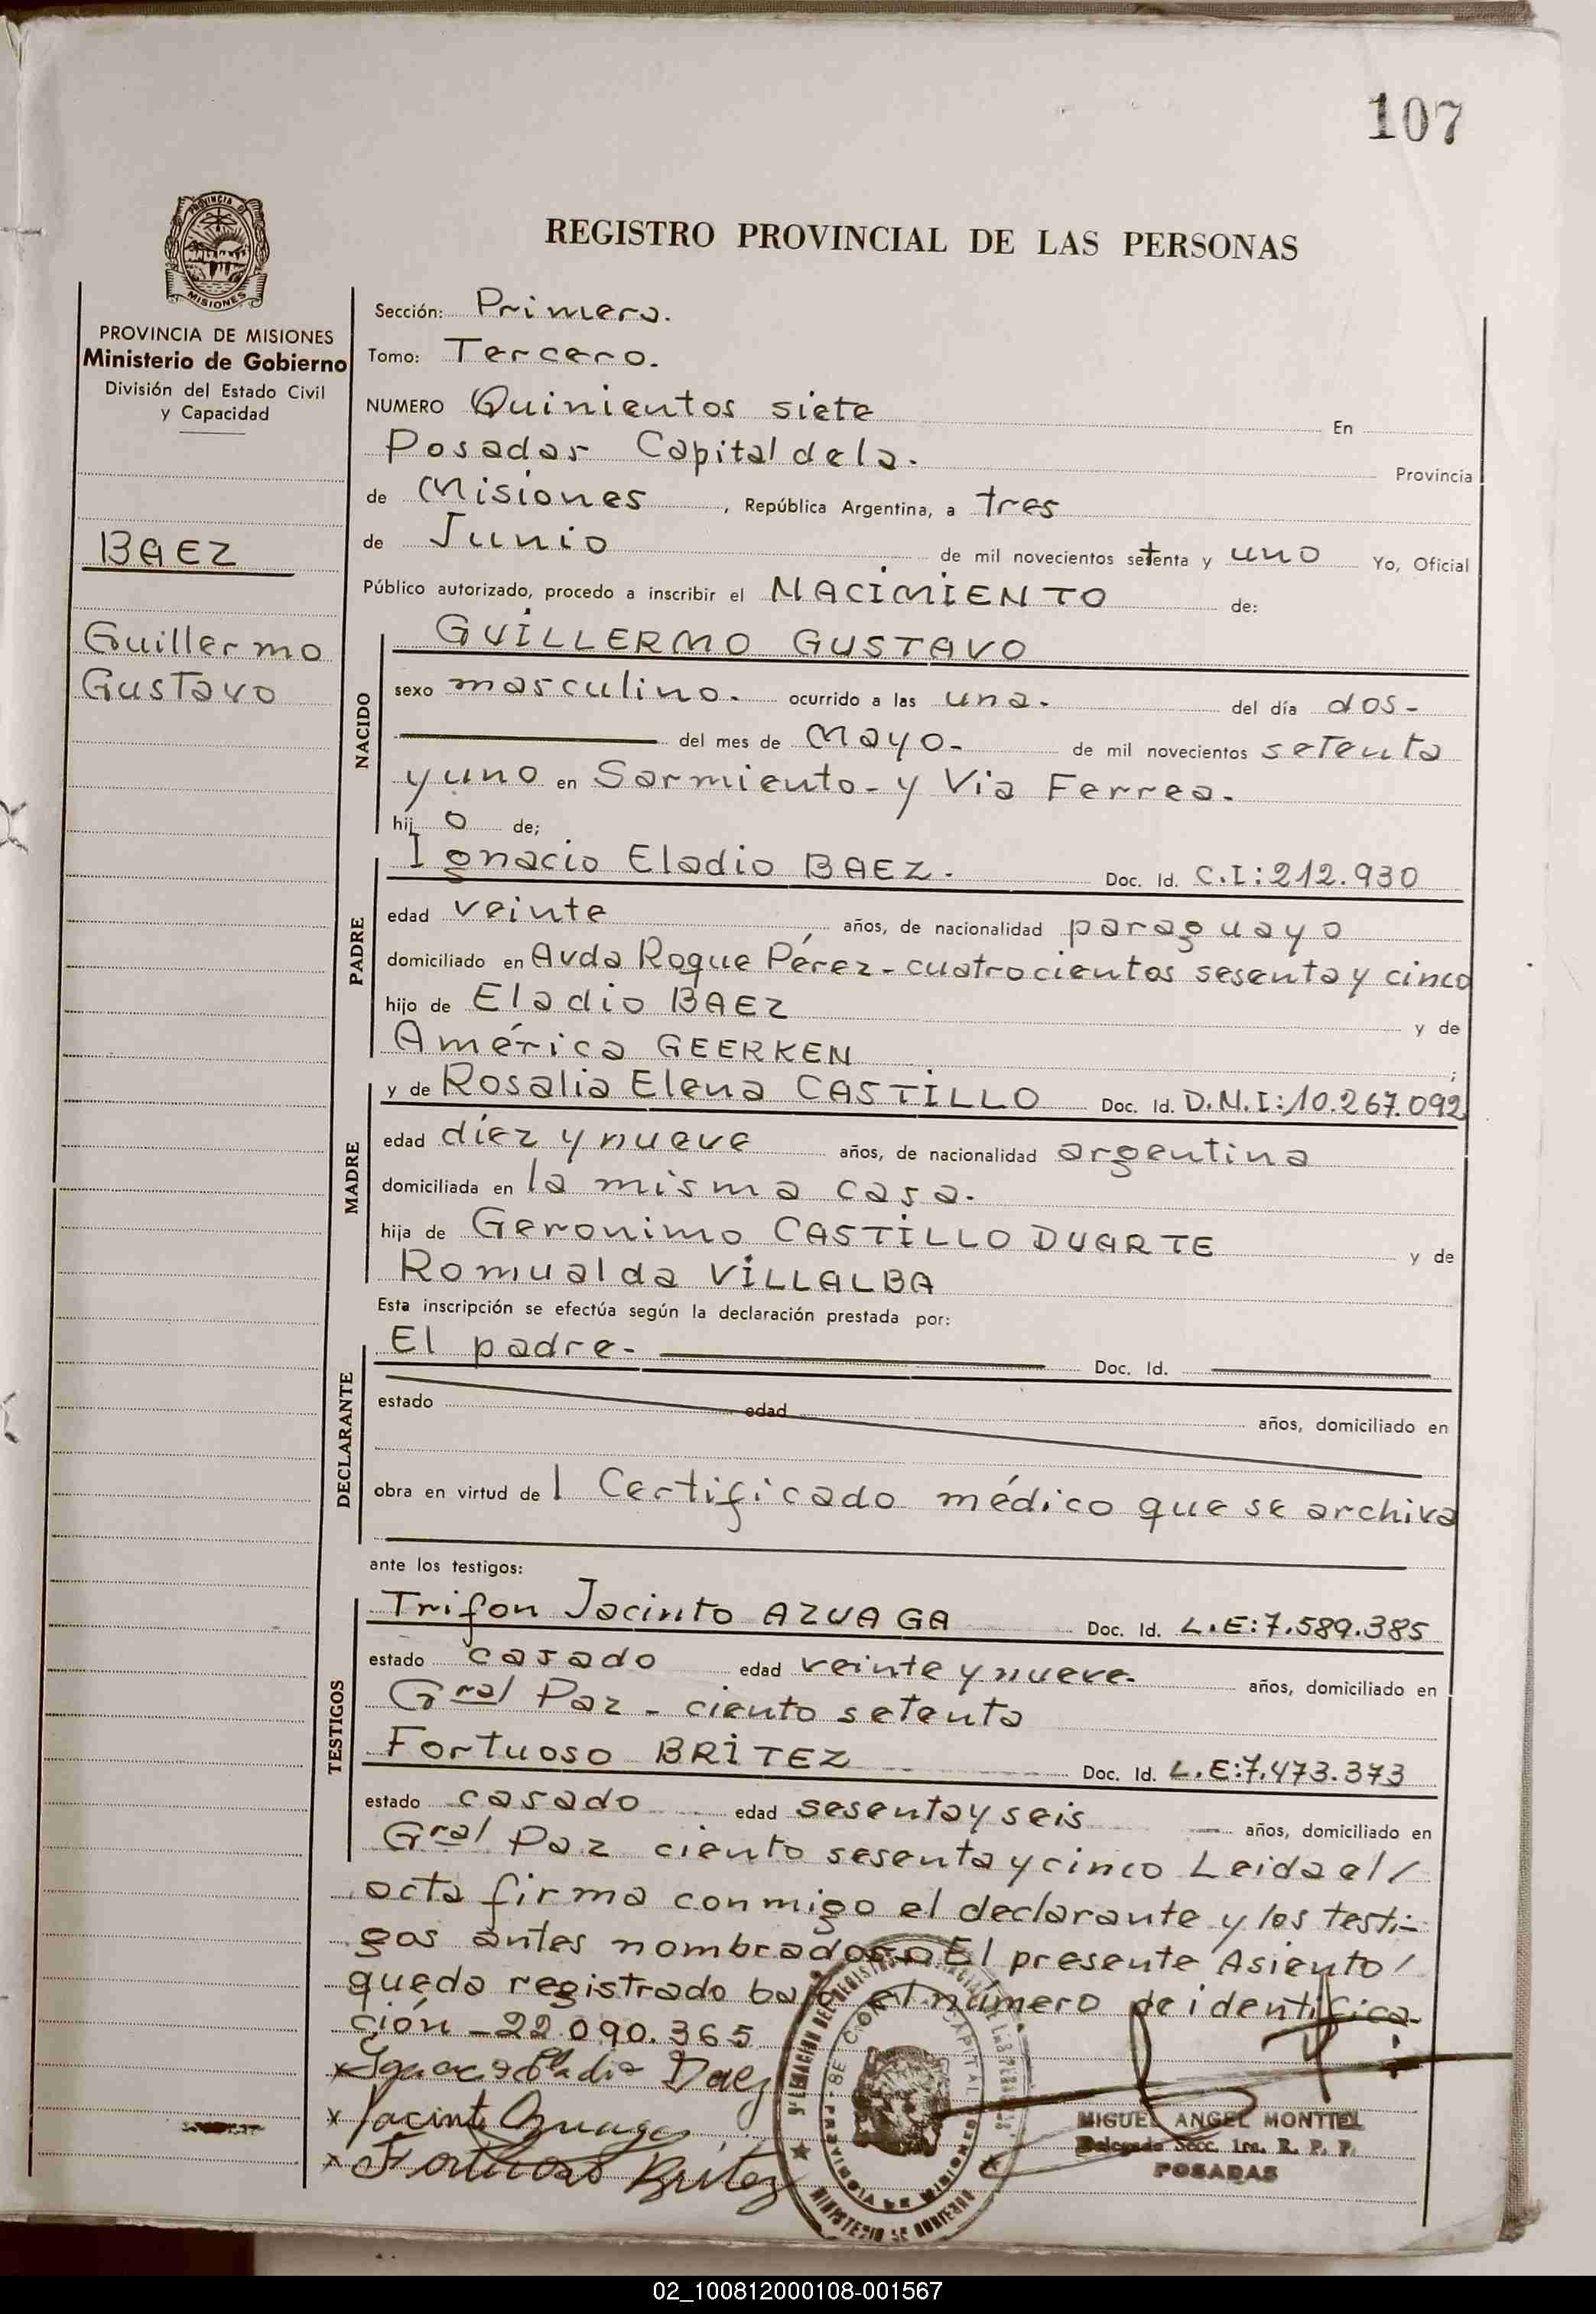 107
PROVINCIA DE
MISIONES
PROVINCIA DE MISIONES
Ministerio de Gobierno
División del Estado Civil
y Capacidad
BAEZ
Guillermo
Gustavo
REGISTRO PROVINCIAL DE LAS PERSONAS
Sección: Primera.
Tomo: Tercero.
NUMERO Quinientos siete En
Posadas Capital de la. Provincia
de Misiones, República Argentina, a tres
de Junio de mil novecientos setenta y uno Yo, Oficial
Público autorizado, procedo a inscribir el NACIMIENTO de:
NACIDO
GUILLERMO GUSTAVO
sexo masculino. ocurrido a las una. del día dos-
del mes de Mayo- de mil novecientos setenta
y uno en Sarmiento- y Via Ferrea.
hijo de;
PADRE
Ignacio Eladio BAEZ. Doc. Id. C.I:212.930
edad veinte años, de nacionalidad paraguayo
domiciliado en Avda Roque Pérez- cuatrocientos sesenta y cinco
hijo de Eladio BAEZ y de
América GEERKEN ;
MADRE
y de Rosalia Elena CASTILLO Doc. Id. D.N.I:10.267.092
edad diez y nueve años, de nacionalidad argentina
domiciliada en la misma casa.
hija de Geronimo CASTILLO DUARTE y de
Romualda VILLALBA
Esta inscripción se efectúa según la declaración prestada por:
DECLARANTE
El padre- Doc. Id.
estado edad años, domiciliado en
obra en virtud del Certificado médico que se archiva
ante los testigos:
TESTIGOS
Trifon Jacinto AZUAGA Doc. Id. L.E:7.589.385
estado casado edad veinte y nueve- años, domiciliado en
Gral Paz - ciento setenta
Fortuoso BRITEZ Doc. Id. L.E:7.473.373
estado casado edad sesenta y seis años, domiciliado en
Gral Paz ciento sesenta y cinco Leida el/
acta firma conmigo el declarante y los testi-
gos antes nombrados El presente Asiento/
queda registrado bajo el número de identifica-
ción -22.090.365
x Ignacio Eladio Baez
x Jacinto Azuaga
x Fortuoso Britez
PROVINCIA DE MISIONES
MINISTERIO DE GOBIERNO
MIGUEL ANGEL MONTIEL
Delegado Secc. 1ra. R. P. P.
POSADAS
02_100812000108-001567